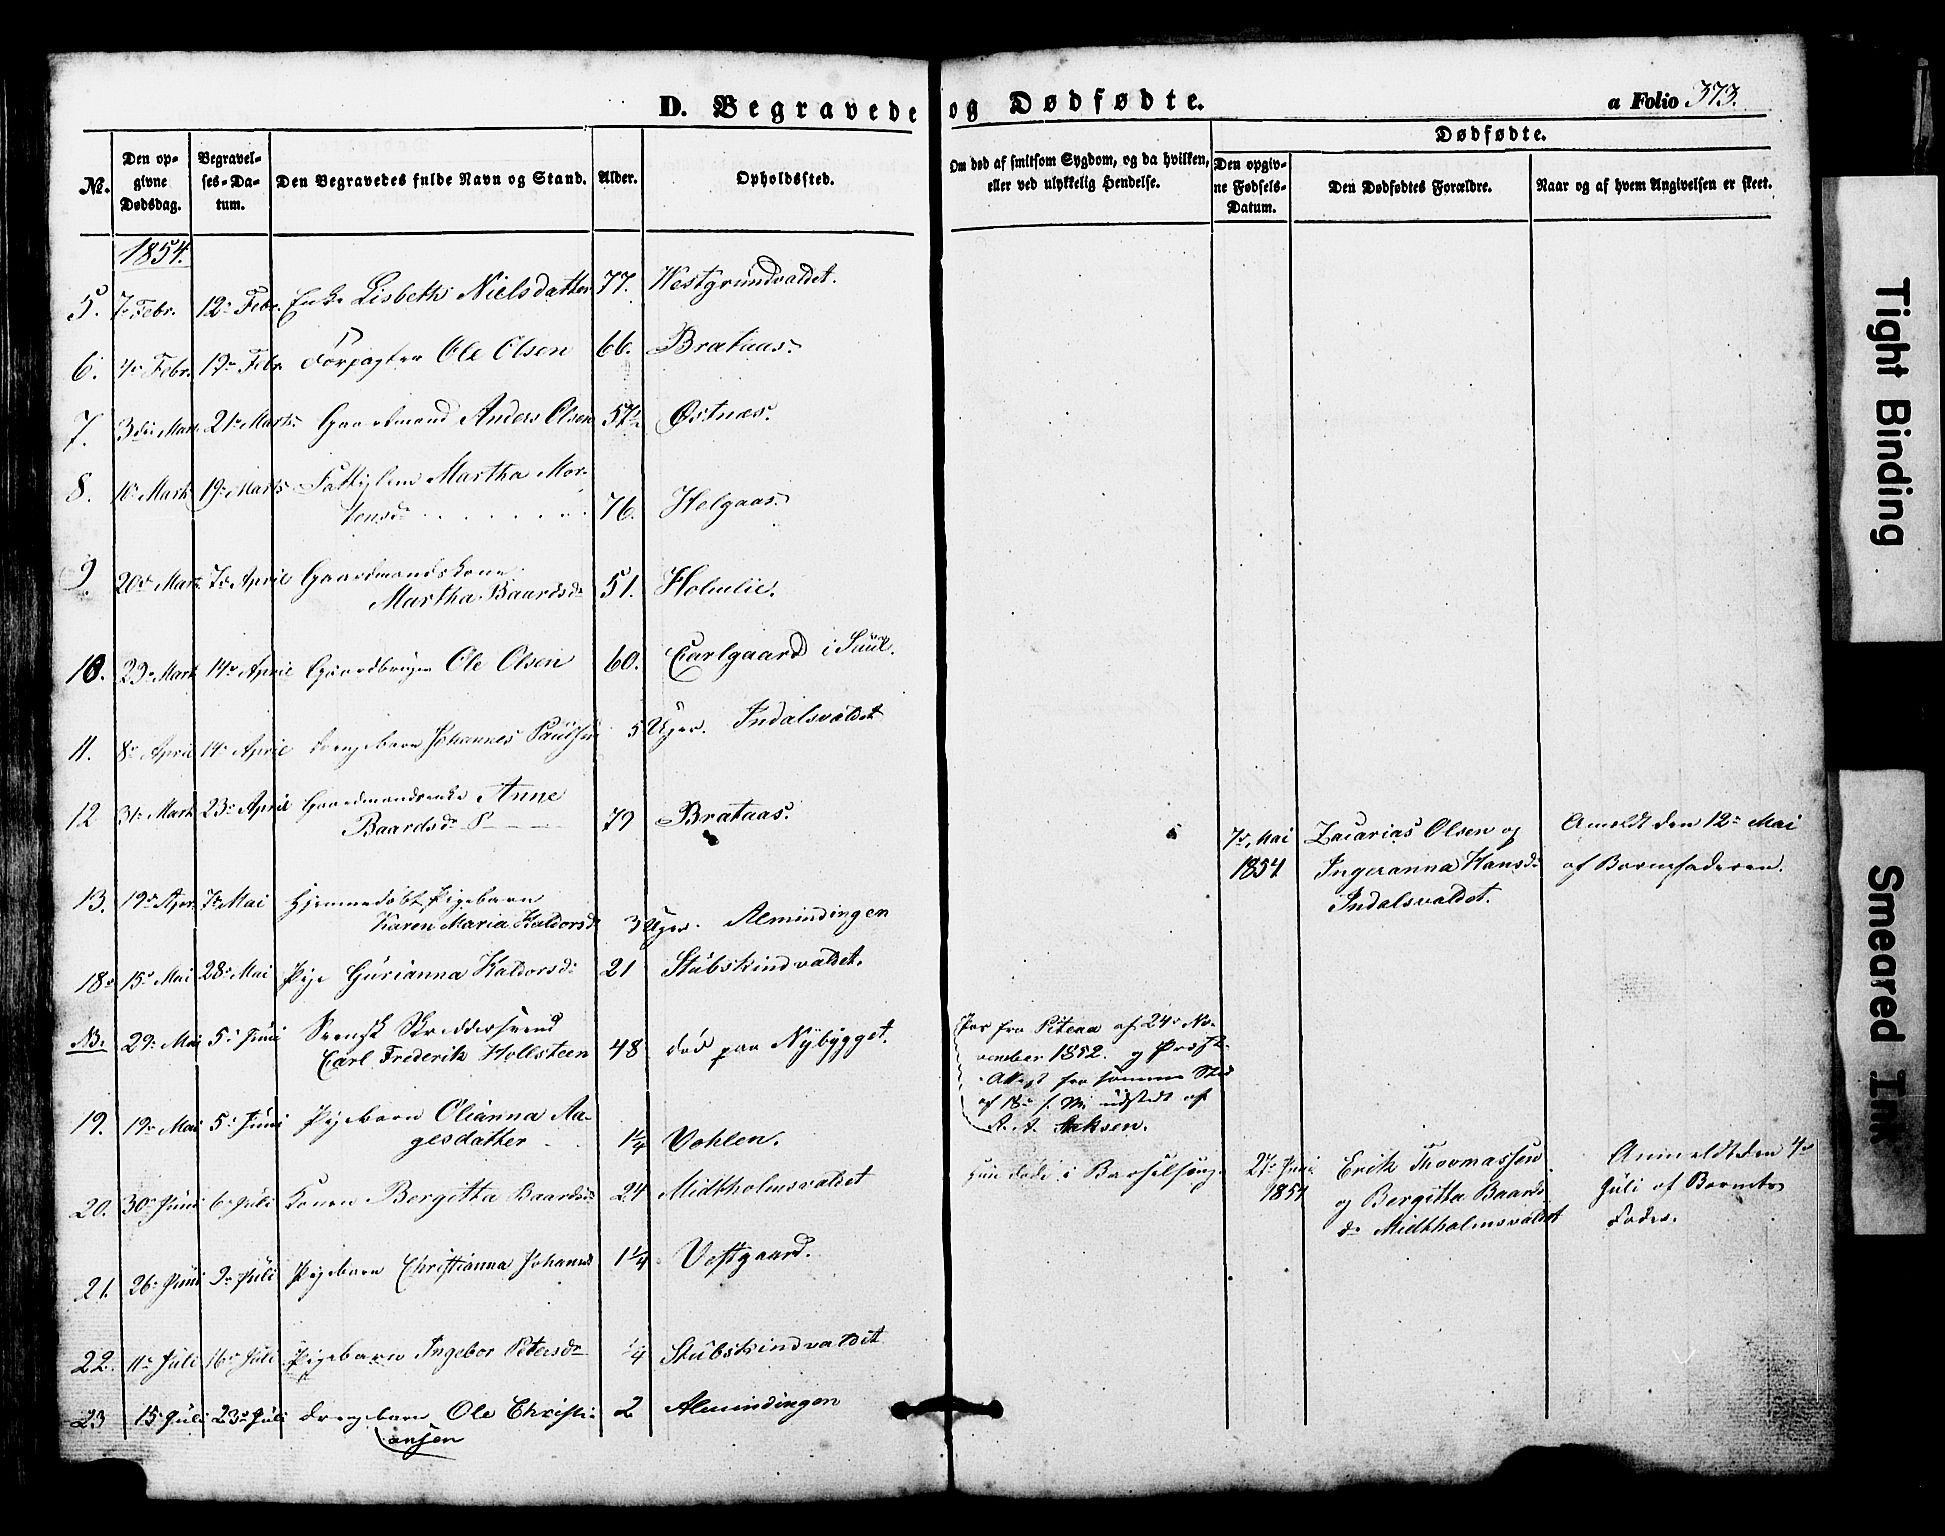 D. Begravede og Dødfødte.
a Folio 373.
Dødfødte.
No. Den opgivne Dødsdag. Begravelses-Datum. Den Begravedes fulde Navn og Stand. Alder. Opholdssted. Om død af smitsom Sygdom, og da hvilken, eller ved ulykkelig Hendelse. Den opgivne Fødsels-Datum. Den Dødfødtes Forældre. Naar og af hvem Angivelsen er skeet.
1854.
5. 7de Febr. 12te Febr. Enke Lisbeth Nielsdatter 77. Westgrundvaldet.
6. 4de Febr. 19de Febr. Forpagter Ole Olsen 66. Brataas.
7. 3die Mart. 21de Marts Gaardmand Anders Olsen 57½ Østnæs.
8. 10de Mart. 19de Marts Fattiglem Martha Mor-
tensdr 76. Helgaas.
9. 20de Mart. 7de April Gaardmandskone
Martha Baardsdr 51. Holmlie.
10. 23de Mart. 14de April Gaardbruger Ole Olsen 60. Carlgaard i Suul.
11. 8de April 14de April Drengebarn Johannes Paulsen 5 Uger. Indalsvaldet
12 31te Mart. 23de April Gaardmandsenke Anne
Baardsdr 79 Brataas.
7de Mai
1854 Zacarias Olsen og
Ingeranna Hansdr
Indalsvaldet. Anmeldt den 12te Mai
af Barnefaderen.
13. 19de Apr. 7de Mai Hjemmedøbt Pigebarn
Karen Maria Haldorsdr 3 Uger. Almindingen
18. 15de Mai 28de Mai Pige Gurianna Haldorsdr 21 Stubskindvaldet.
NB. 29de Mai 5te Juni Svensk Skreddersvend
Carl Frederik Hollsteen 48 død paa Nybygget. Pas fra Piteaa af 24de No-
vember 1852. og Præste-
Attest fra samme Sted
af 18de s. M. udstedt af
19. 19de Mai 5te Juni Pigebarn Olianna Aa-
gesdatter 1¼ Vohlen.
20. 30te Juni 6te Juli Konen Bergitta Baardsdr 24 Midtholmsvaldet Hun døde i Barselseng. 27de Juni
1854 Erik Thommassen
og Bergitta Baards
dr Midtholmsvaldet Anmeldt den 4de
Juli af Barnets
Fader.
21. 26de Juni 9de Juli Pigebarn Christianna Johannesdr 1¼ Vestgaard.
22. 11te Juli 16de Juli Pigebarn Ingebor Petersdr ¼ Stubskindvaldet
23 15de Juli 23de Juli Drengebarn Ole Christi-
ansen 2 Almindingen
Tight Binding
Smeared Ink